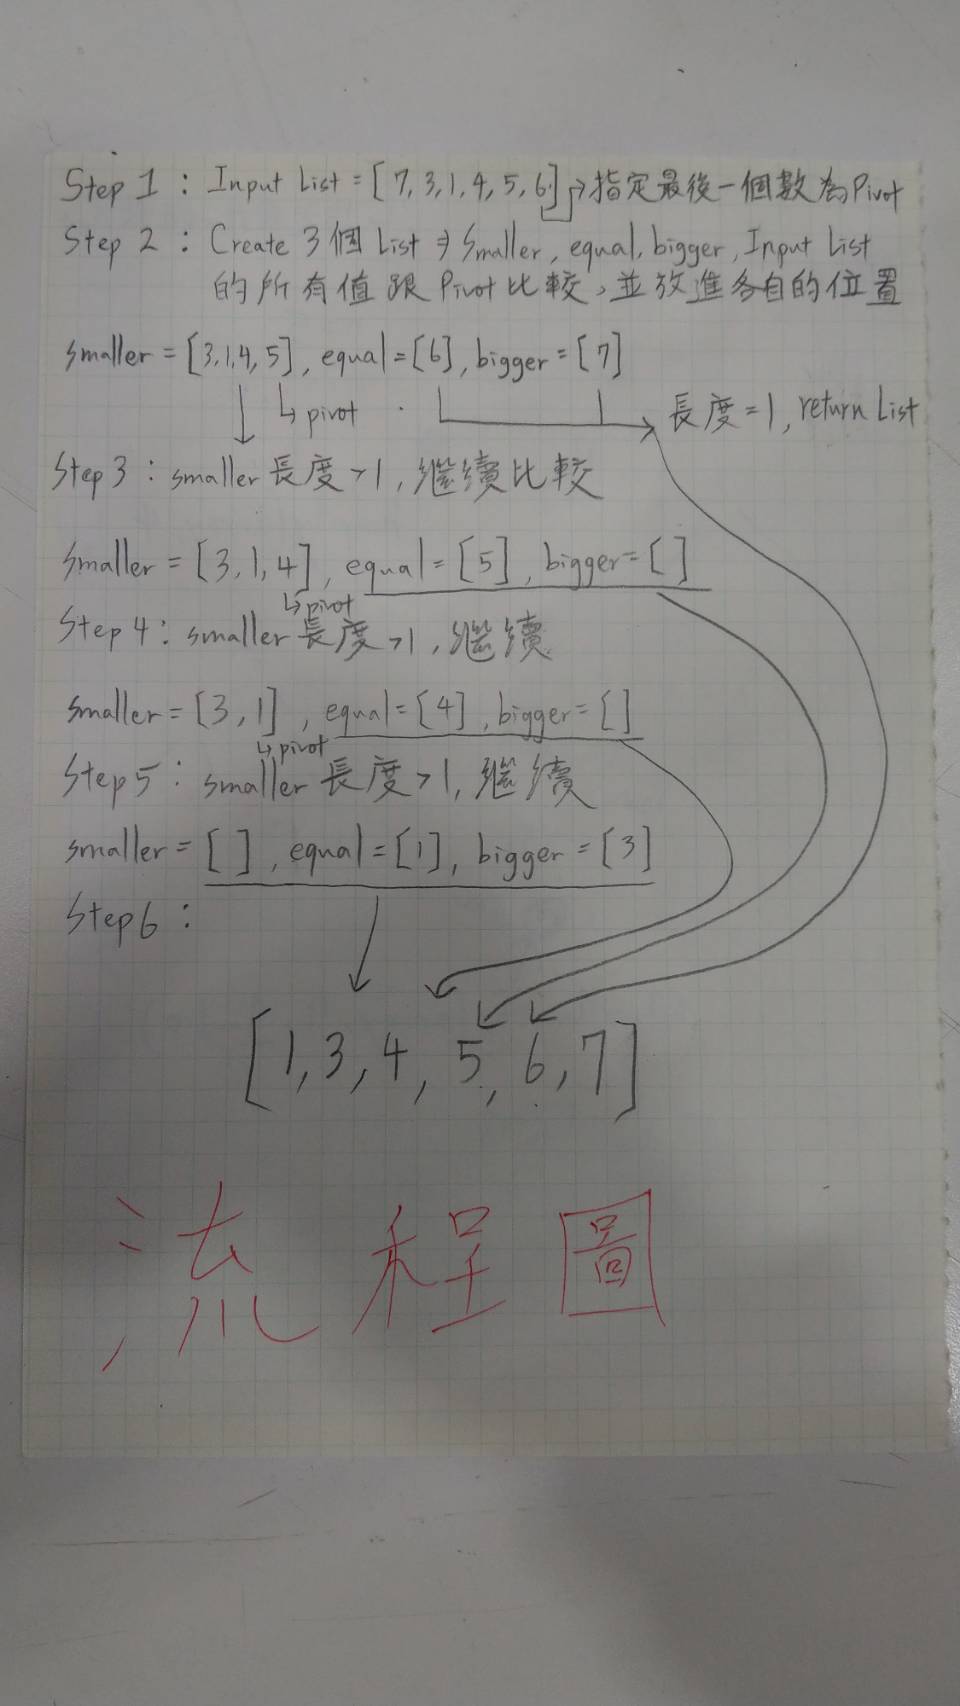 Step 1 : Input List = [7, 3, 1, 4, 5, 6] → 指定最後一個數為Pivot
Step 2 : Create 3 個 List ⇒ Smaller, equal, bigger, Input List
的所有值跟 Pivot 比較，並放進各自的位置
smaller = [3, 1, 4, 5], equal = [6], bigger = [7]
↳ pivot
長度 = 1, return List
Step 3 : smaller 長度 > 1, 繼續比較
smaller = [3, 1, 4], equal = [5], bigger = [ ]
↳ pivot
Step 4 : smaller 長度 > 1, 繼續
smaller = [3, 1], equal = [4], bigger = [ ]
↳ pivot
Step 5 : smaller 長度 > 1, 繼續
smaller = [ ], equal = [1], bigger = [3]
Step 6 :
[1, 3, 4, 5, 6, 7]
流程圖